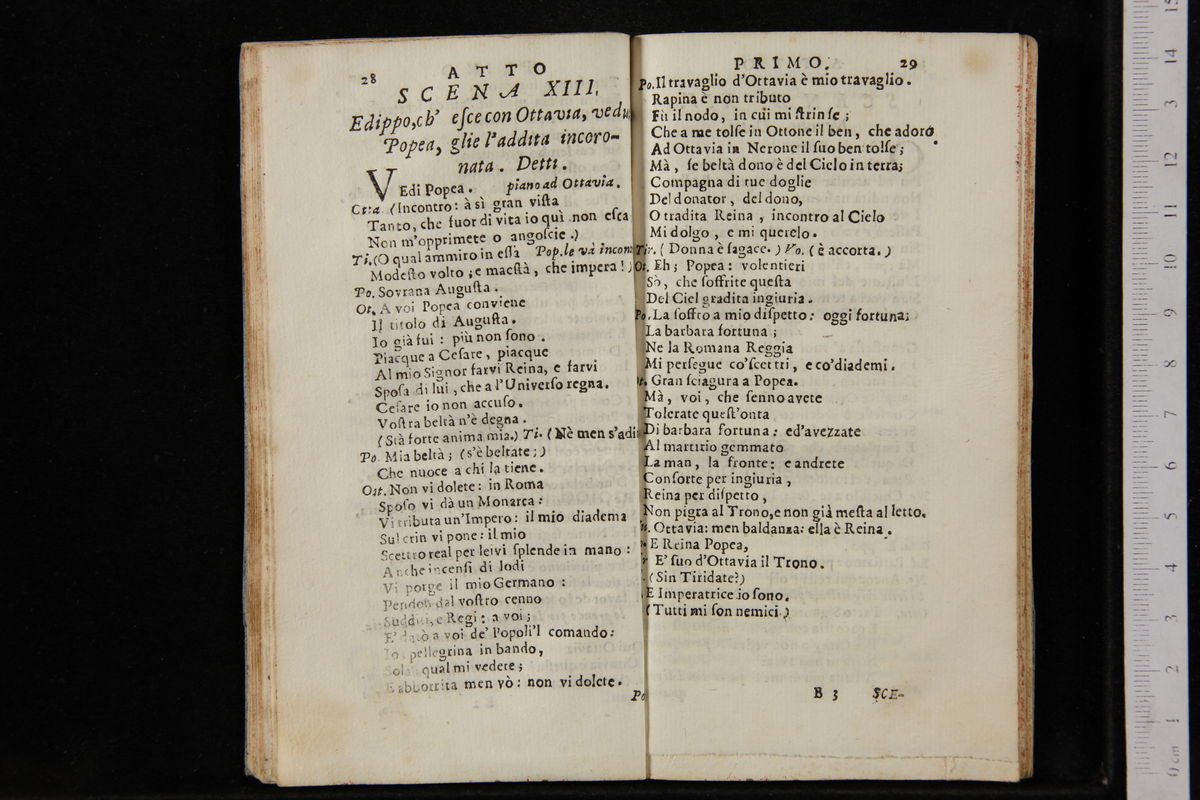 28
ATTO
SCENA XIII,
Edippo, ch' eſce con Ottavia, vedu
Popea, glie l'addita incoro-
nata. Detti.
VEdi Popea. piano ad Ottavia.
Otta (Incontro: à sì gran viſta
Tanto, che fuor di vita io quì non eſca
Non m'opprimete o angoſcie.)
Ti. (O qual ammiro in eſſa Pop. le và incon
Modeſto volto; e maeſtà, che impera!)
Po. Sovrana Auguſta.
Ot. A voi Popea conviene
Il titolo di Auguſta.
Io già fui: più non ſono.
Piacque a Ceſare, piacque
Al mio Signor farvi Reina, e farvi
Spoſa di lui, che a l'Univerſo regna.
Ceſare io non accuſo.
Voſtra beltà n'è degna.
(Stà forte anima mia.) Ti. (Nè men s'adi
Po. Mia beltà; (s'è beltate;)
Che nuoce a chi la tiene.
Ott. Non vi dolete: in Roma
Spoſo vi dà un Monarca:
Vi tributa un'Impero: il mio diadema
Sul crin vi pone: il mio
Scettro real per lei vi ſplende in mano:
Anche incenſi di lodi
Vi porge il mio Germano:
Pendon dal voſtro cenno
Sudditi, e Regi: a voi;
E' dato a voi de' Popoli'l comando:
Io, pellegrina in bando,
Sola qual mi vedete;
E abborrita men vò: non vi dolete.
Po
PRIMO. 29
Po. Il travaglio d'Ottavia è mio travaglio.
Rapina è non tributo
Fù il nodo, in cui mi ſtrinſe;
Che a me tolſe in Ottone il ben, che adoro
Ad Ottavia in Nerone il ſuo ben tolſe;
Mà, ſe beltà dono è del Cielo in terra;
Compagna di tue doglie
Del donator, del dono,
O tradita Reina, incontro al Cielo
Mi dolgo, e mi querelo.
Tir. (Donna è ſagace.) Vo. (è accorta.)
Ot. Eh; Popea: volentieri
Sò, che ſoffrite queſta
Del Ciel gradita ingiuria.
Po. La ſoffro a mio diſpetto: oggi fortuna;
La barbara fortuna;
Ne la Romana Reggia
Mi perſegue co'ſcettri, e co'diademi.
Ot. Gran ſciagura a Popea.
Mà, voi, che ſenno avete
Tolerate queſt'onta
Di barbara fortuna: ed'avezzate
Al martirio gemmato
La man, la fronte: e andrete
Conſorte per ingiuria,
Reina per diſpetto,
Non pigra al Trono, e non già meſta al letto.
Ottavia: men baldanza: ella è Reina.
E Reina Popea,
E' ſuo d'Ottavia il Trono.
(Sin Tiridate?)
E Imperatrice io ſono.
(Tutti mi ſon nemici.)
B 3 SCE-
0 cm 1 2 3 4 5 6 7 8 9 10 11 12 13 14 15